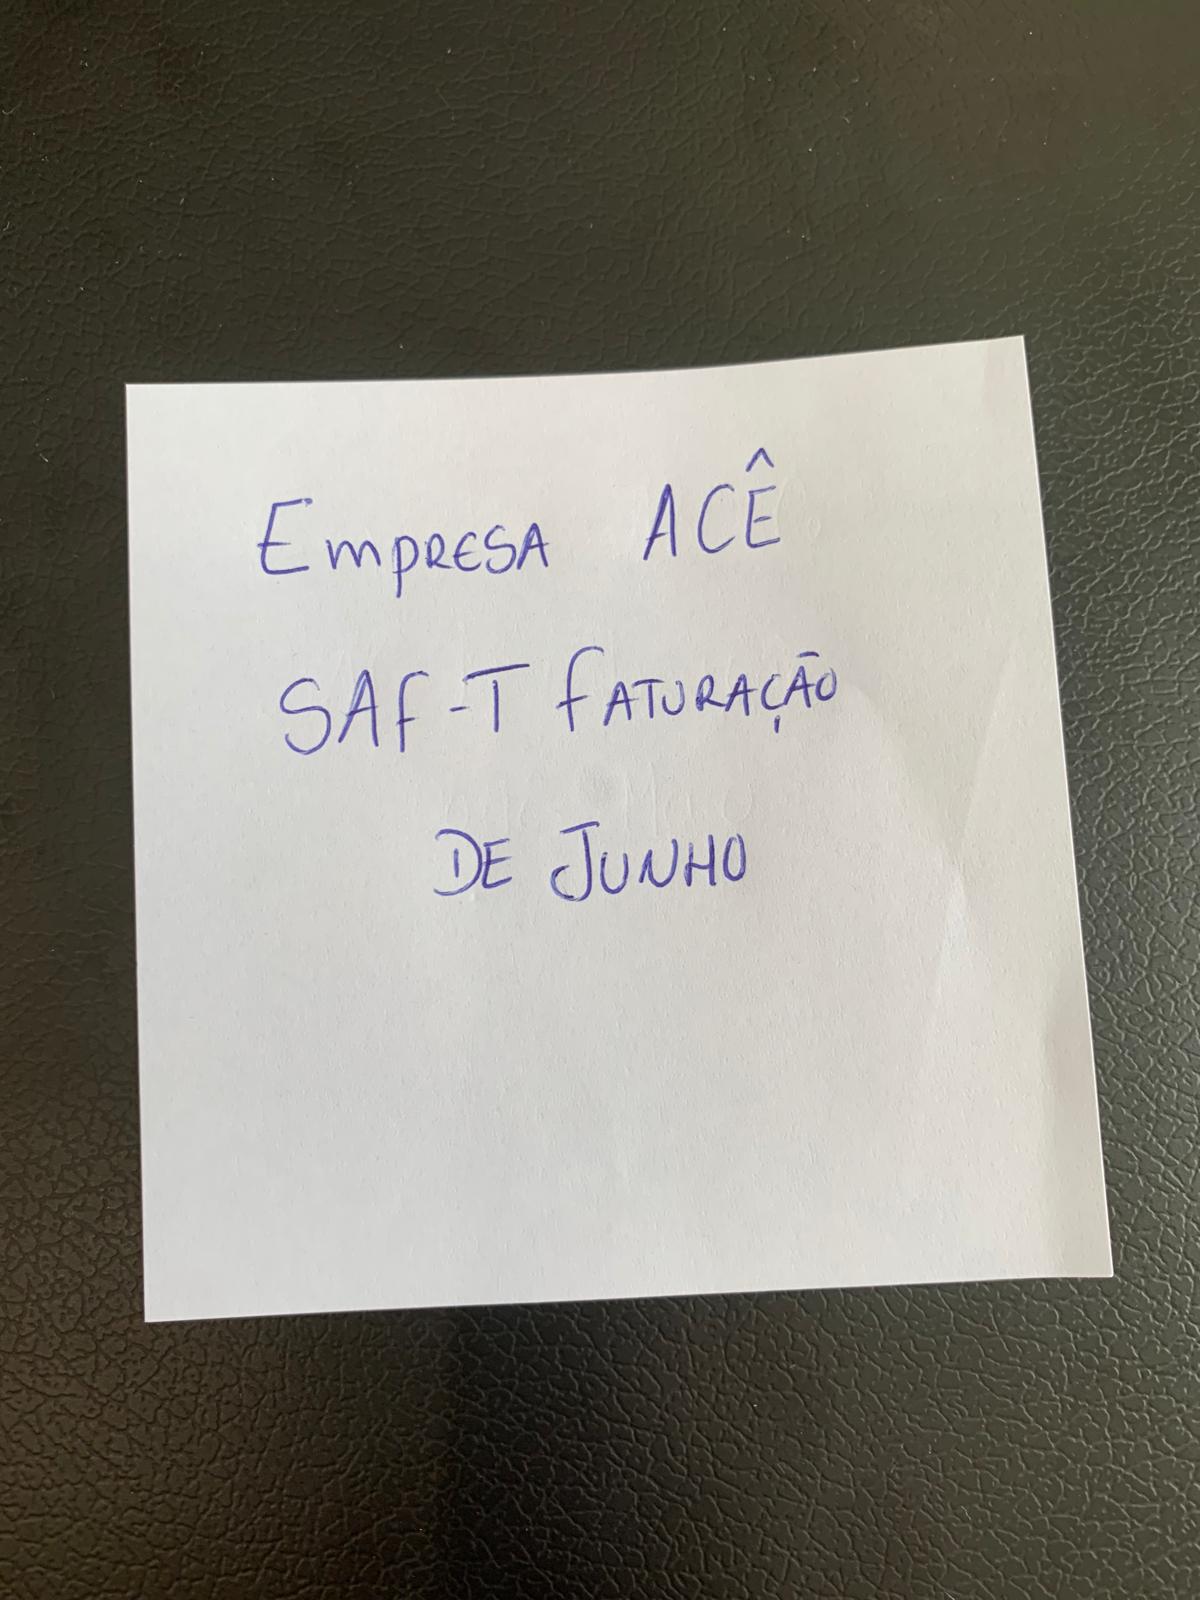 Empresa ACÊ
SAF-T Faturação
de Junho